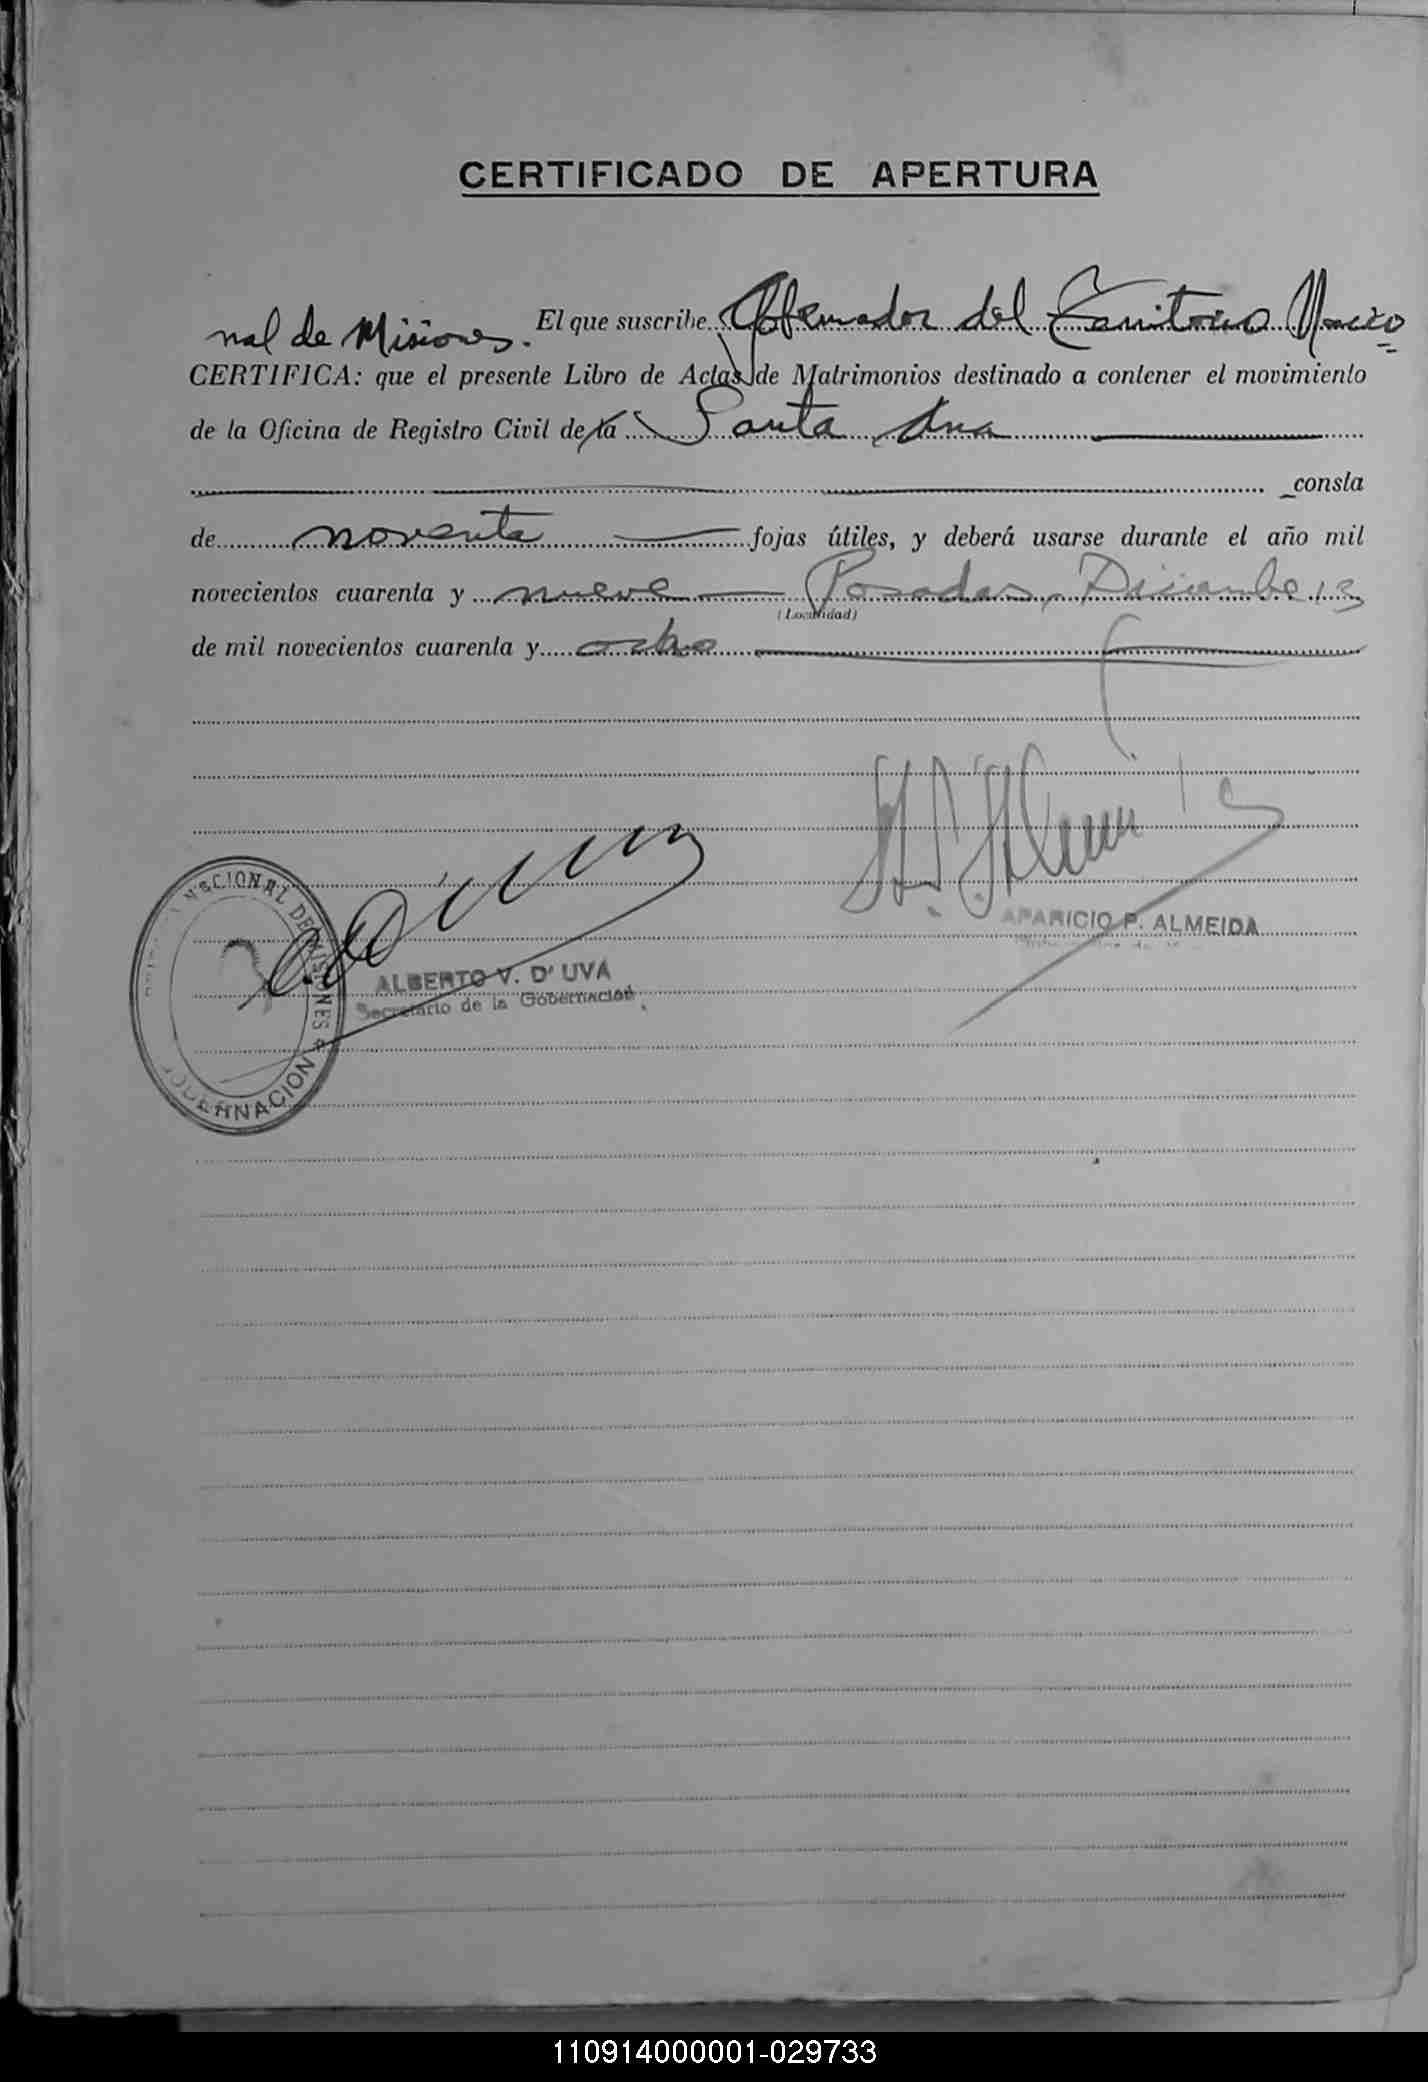 CERTIFICADO DE APERTURA
El que suscribe Gobernador del Territorio Nacio
nal de Misiones.
CERTIFICA: que el presente Libro de Actas de Matrimonios destinado a contener el movimiento
de la Oficina de Registro Civil de la Santa Ana
consta
de noventa fojas útiles, y deberá usarse durante el año mil
novecientos cuarenta y nueve Posadas, Diciembre 13
(Localidad)
de mil novecientos cuarenta y ocho
APARICIO P. ALMEIDA
ALBERTO V. D'UVA
Secretario de la Gobernación
NACIONAL DE MISIONES
GOBERNACION
110914000001-029733